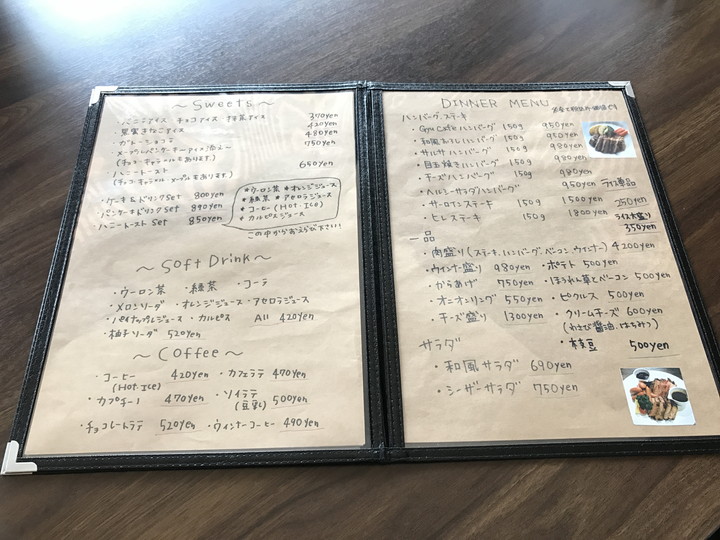 ～Sweets～
・バニラアイス チョコアイス 抹茶アイス 370yen
・黒蜜きなこアイス 420yen
・ガトーショコラ 480yen
・メープルパンケーキ 750yen
(チョコ・キャラメルもあります。)
・ハニートースト 650yen
(チョコ・キャラメル・メープルもあります)
・ケーキ&ドリンクSet 800yen
・パンケーキドリンクSet 890yen
ハニートースト Set 850yen
★ウーロン茶 ★オレンジジュース
★緑茶 ★アセロラジュース
★コーヒー(Hot.Ice)
★カルピスジュース
この中からお選び下さい!
～Soft Drink～
・ウーロン茶 ・緑茶 ・コーラ
・メロンソーダ ・オレンジジュース ・アセロラジュース
・パイナップルジュース ・カルピス All 420yen
・柚子ソーダ 520yen
～Coffee～
・コーヒー 420yen ・カフェラテ 470yen
(Hot.Ice)
・カプチーノ 470yen ・ソイラテ 500yen
(豆乳)
・チョコレートラテ 520yen ・ウィンナーコーヒー 490yen
DINNER MENU
ハンバーグ.ステーキ
・Gyu Cafe ハンバーグ 150g 950yen
・和風おろしハンバーグ 150g 950yen
・サルサハンバーグ 150g 980yen
・目玉焼きハンバーグ 150g 980yen
・チーズハンバーグ 150g 980yen
・ヘルシーサラダハンバーグ 950yen
・サーロインステーキ 150g 1500yen
・ヒレステーキ 150g 1800yen
ライス単品
250yen
ライス大盛り
350yen
一品
・肉盛り(ステーキ.ハンバーグ.ベーコン.ウインナー) 4200yen
・ウインナー盛り 980yen ・ポテト 500yen
・からあげ 750yen ・ほうれん草とベーコン 500yen
・オニオンリング 550yen ・ピクルス 500yen
・チーズ盛り 1300yen ・クリームチーズ 600yen
(わさび醤油.はちみつ)
・枝豆 500yen
サラダ
・和風サラダ 690yen
・シーザーサラダ 750yen